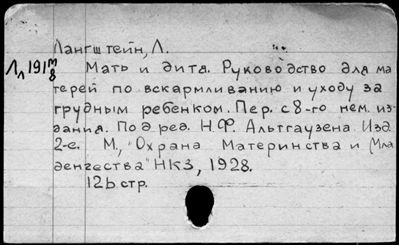 Лангштейн, Л.
Л л 191 м/8 Мать и дитя. Руководство для ма
терей по вскармливанию и уходу за
грудным ребенком. Пер. с 8-го нем. из-
дания. Под ред. Н.Ф. Альтгаузена. Изд.
2-е. М., "Охрана Материнства и Мла
денчества" НКЗ, 1928.
126 стр.